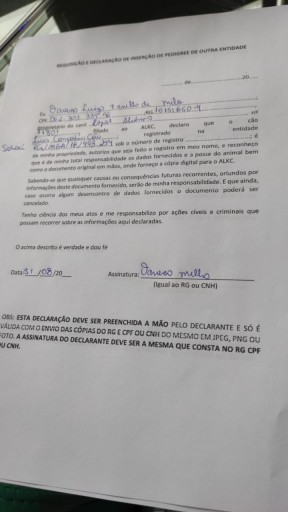 REQUISIÇÃO E DECLARAÇÃO DE INSERÇÃO DE PEDIGREE DE OUTRA ENTIDADE
de 20
Eu
CPF RG
proprietário do canil declara que o cão
filiado ao ALKC, registrado na entidade
sob o número de registro ; é
de minha propriedade. Autorizo que seja feito o registro em meu nome, e reconheço
que é de minha total responsabilidade os dados fornecidos e a posse do animal bem
como o documento original em mãos, onde forneço a cópia digital para o ALKC.
Sabendo-se que quaisquer causas ou consequências futuras recorrentes, oriundos por
informações deste documento fornecido, serão de minha responsabilidade. E que ainda,
caso ocorra algum desencontro de dados fornecidos o documento poderá ser
cancelado.
Tenho ciência dos meus atos e me responsabilizo por ações cíveis e criminais que
possam recorrer sobre as informações aqui declaradas.
O acima descrito é verdade e dou fé
Data 31/08/20 Assinatura:
(Igual ao RG ou CNH)
OBS: ESTA DECLARAÇÃO DEVE SER PREENCHIDA A MÃO PELO DECLARANTE E SÓ É
VÁLIDA COM O ENVIO DAS CÓPIAS DO RG E CPF OU CNH DO MESMO EM JPEG, PNG OU
FOTO. A ASSINATURA DO DECLARANTE DEVE SER A MESMA QUE CONSTA NO RG CPF
OU CNH.